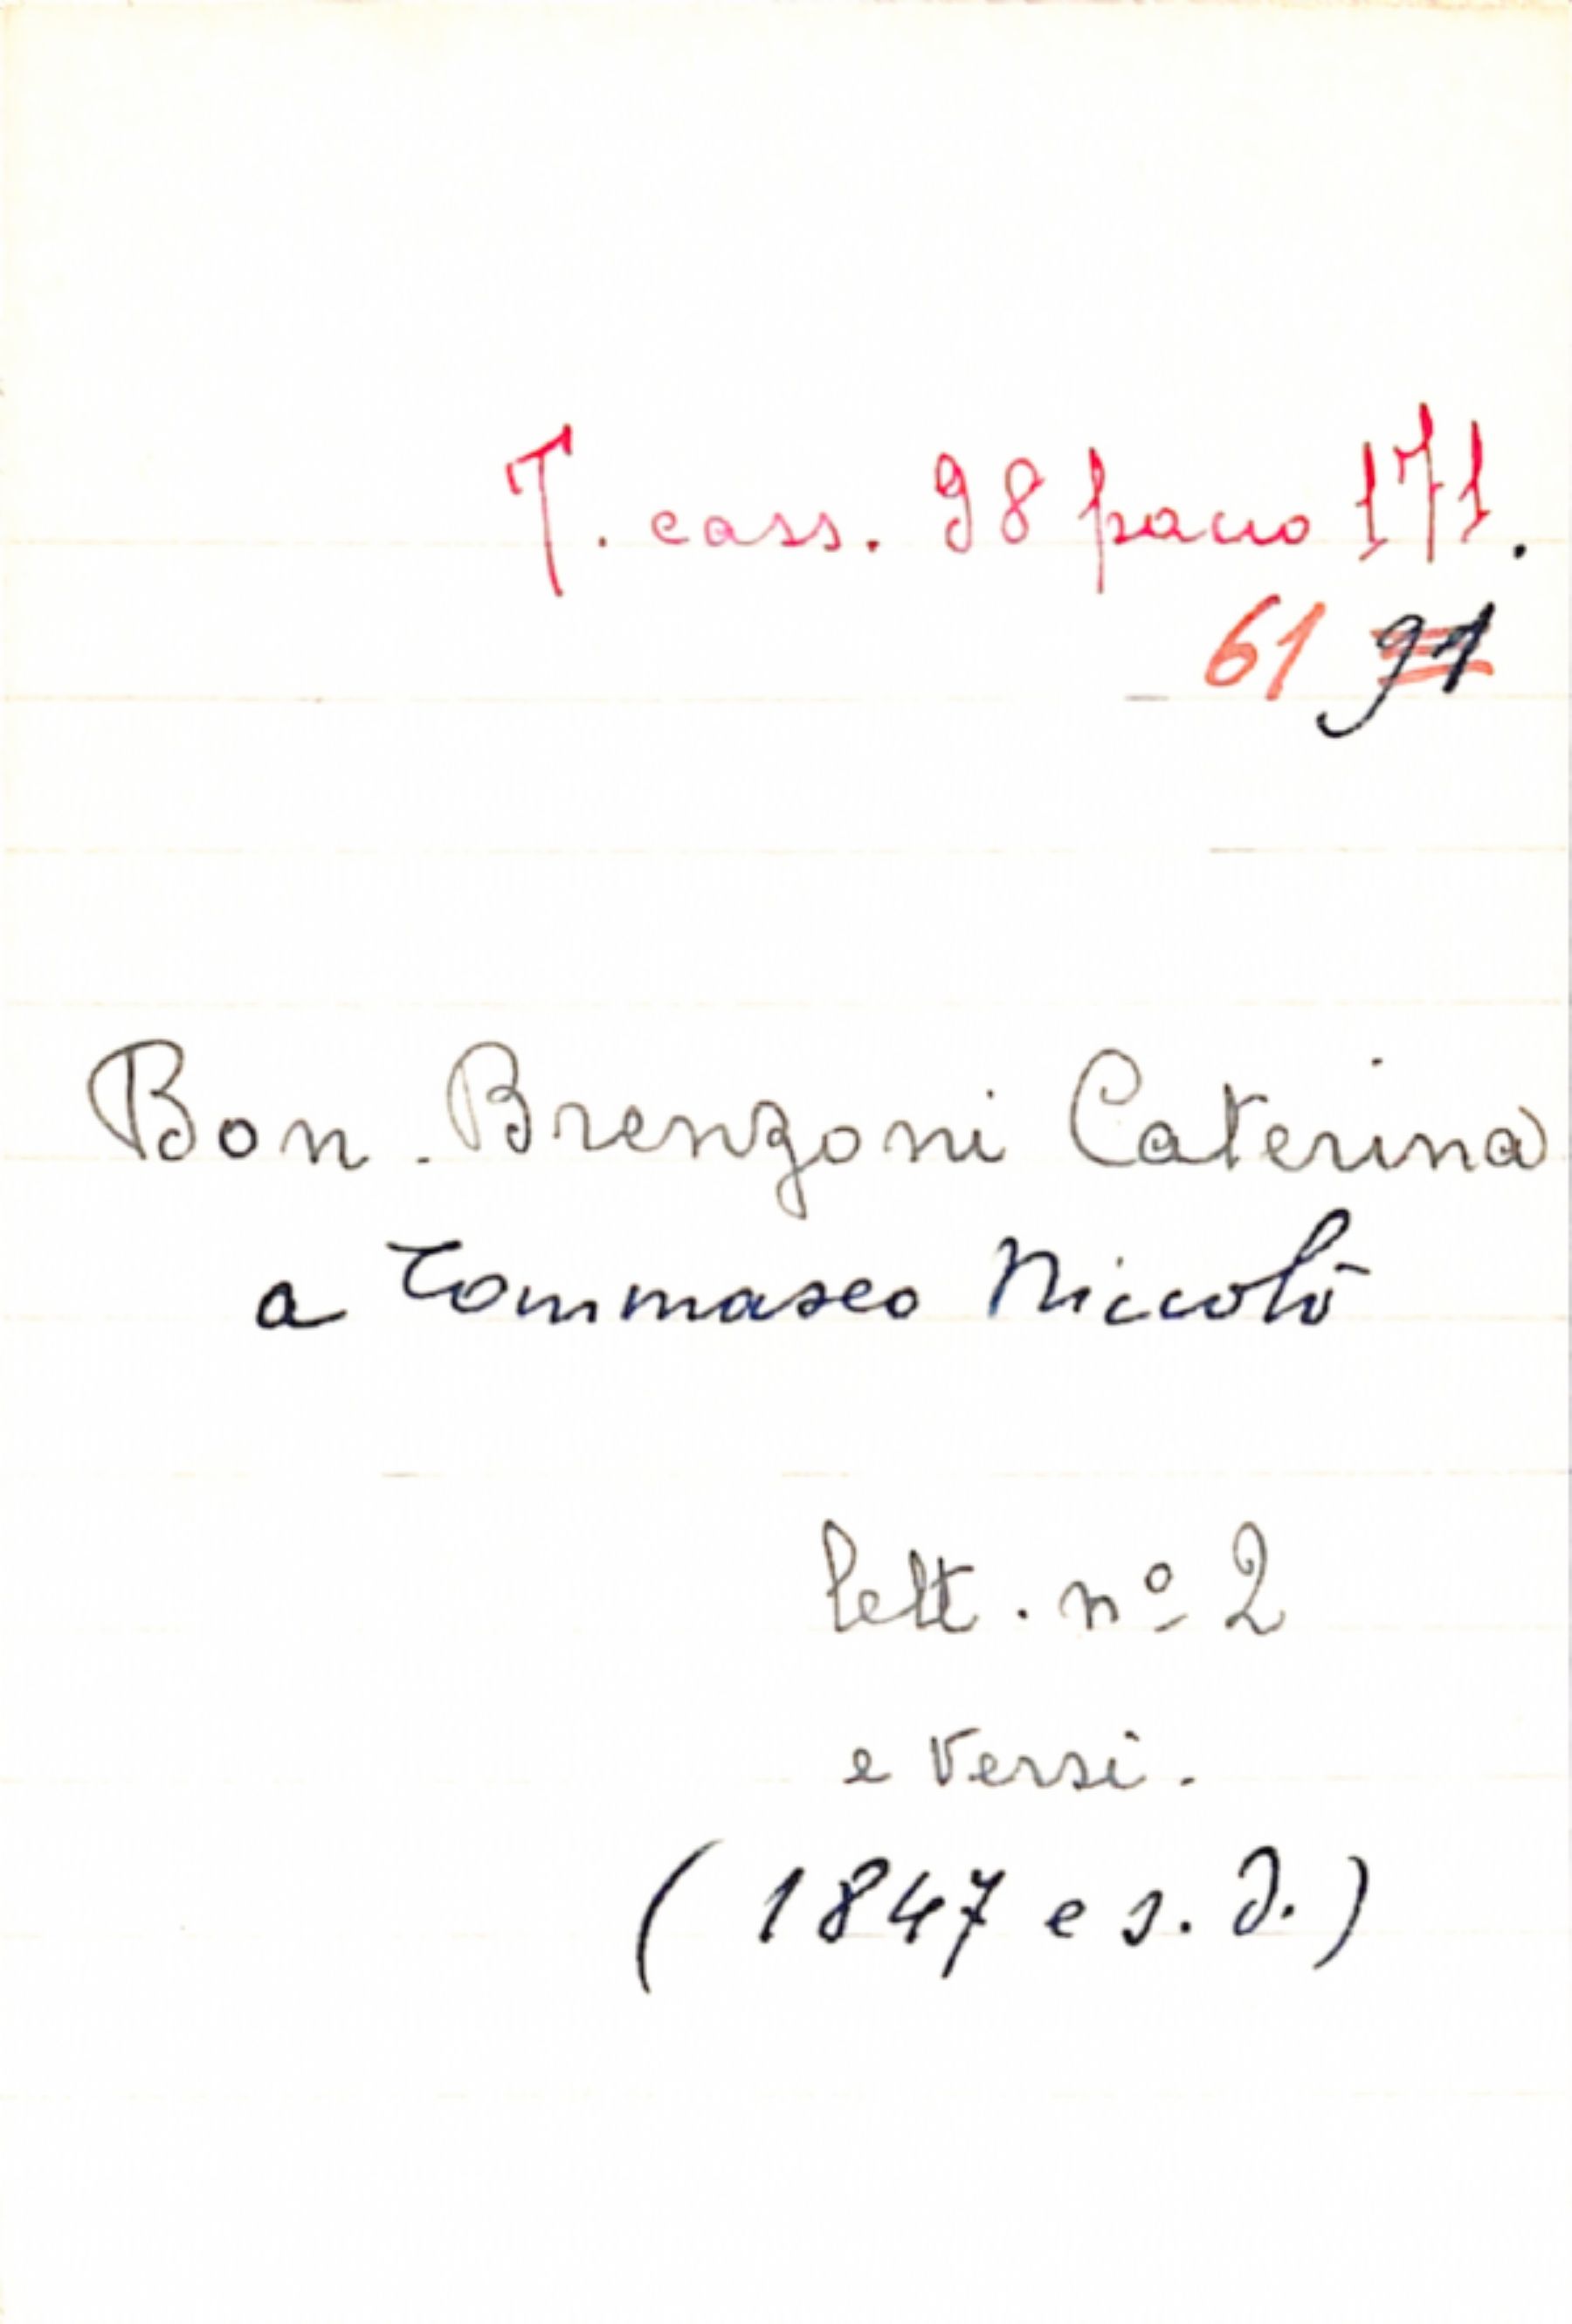 T. cass. 98 pacco 171.
61 91
Bon. Brenzoni Caterina
a Tommaseo Niccolò
lett. nº 2
e versi.
(1847 e s. d.)